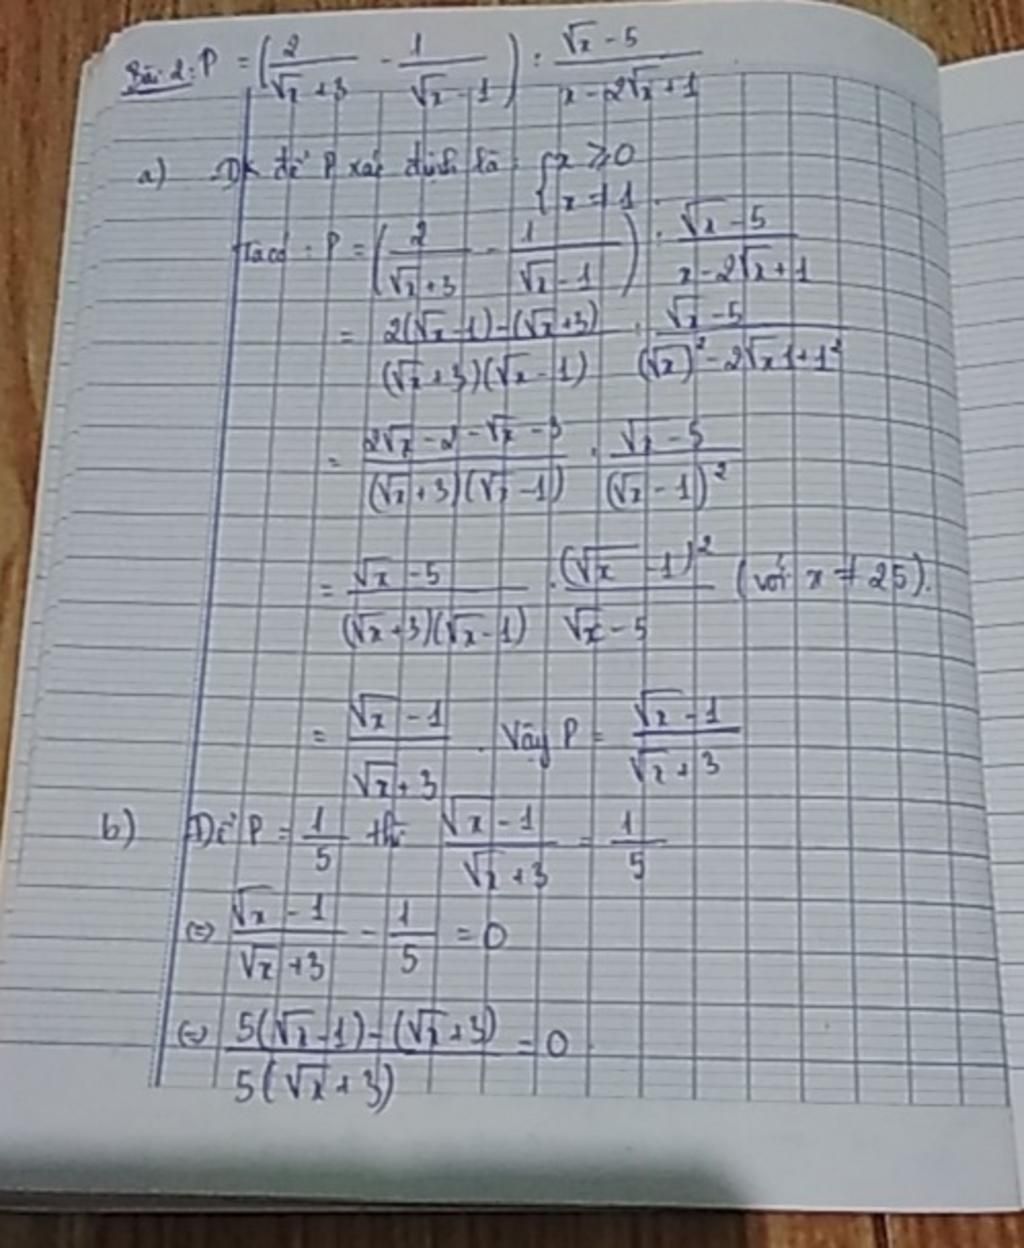 Bài 2: P = (2/(√x + 3) - 1/(√x - 1)) : (√x - 5)/(x - 2√x + 1)
a) Đk để P xác định là {x ≥ 0
{x ≠ 1.
Ta có: P = (2/(√x + 3) - 1/(√x - 1)) : (√x - 5)/(x - 2√x + 1)
= (2(√x - 1) - (√x + 3))/((√x + 3)(√x - 1)) : (√x - 5)/((√x)² - 2√x1 + 1²)
= (2√x - 2 - √x - 3)/((√x + 3)(√x - 1)) : (√x - 5)/(√x - 1)²
= (√x - 5)/((√x + 3)(√x - 1)) . (√x - 1)²/(√x - 5) (với x ≠ 25).
= (√x - 1)/(√x + 3) . Vậy P = (√x - 1)/(√x + 3)
b) Để P = 1/5 thì (√x - 1)/(√x + 3) = 1/5
(=) (√x - 1)/(√x + 3) - 1/5 = 0
(=) (5(√x - 1) - (√x + 3))/(5(√x + 3)) = 0